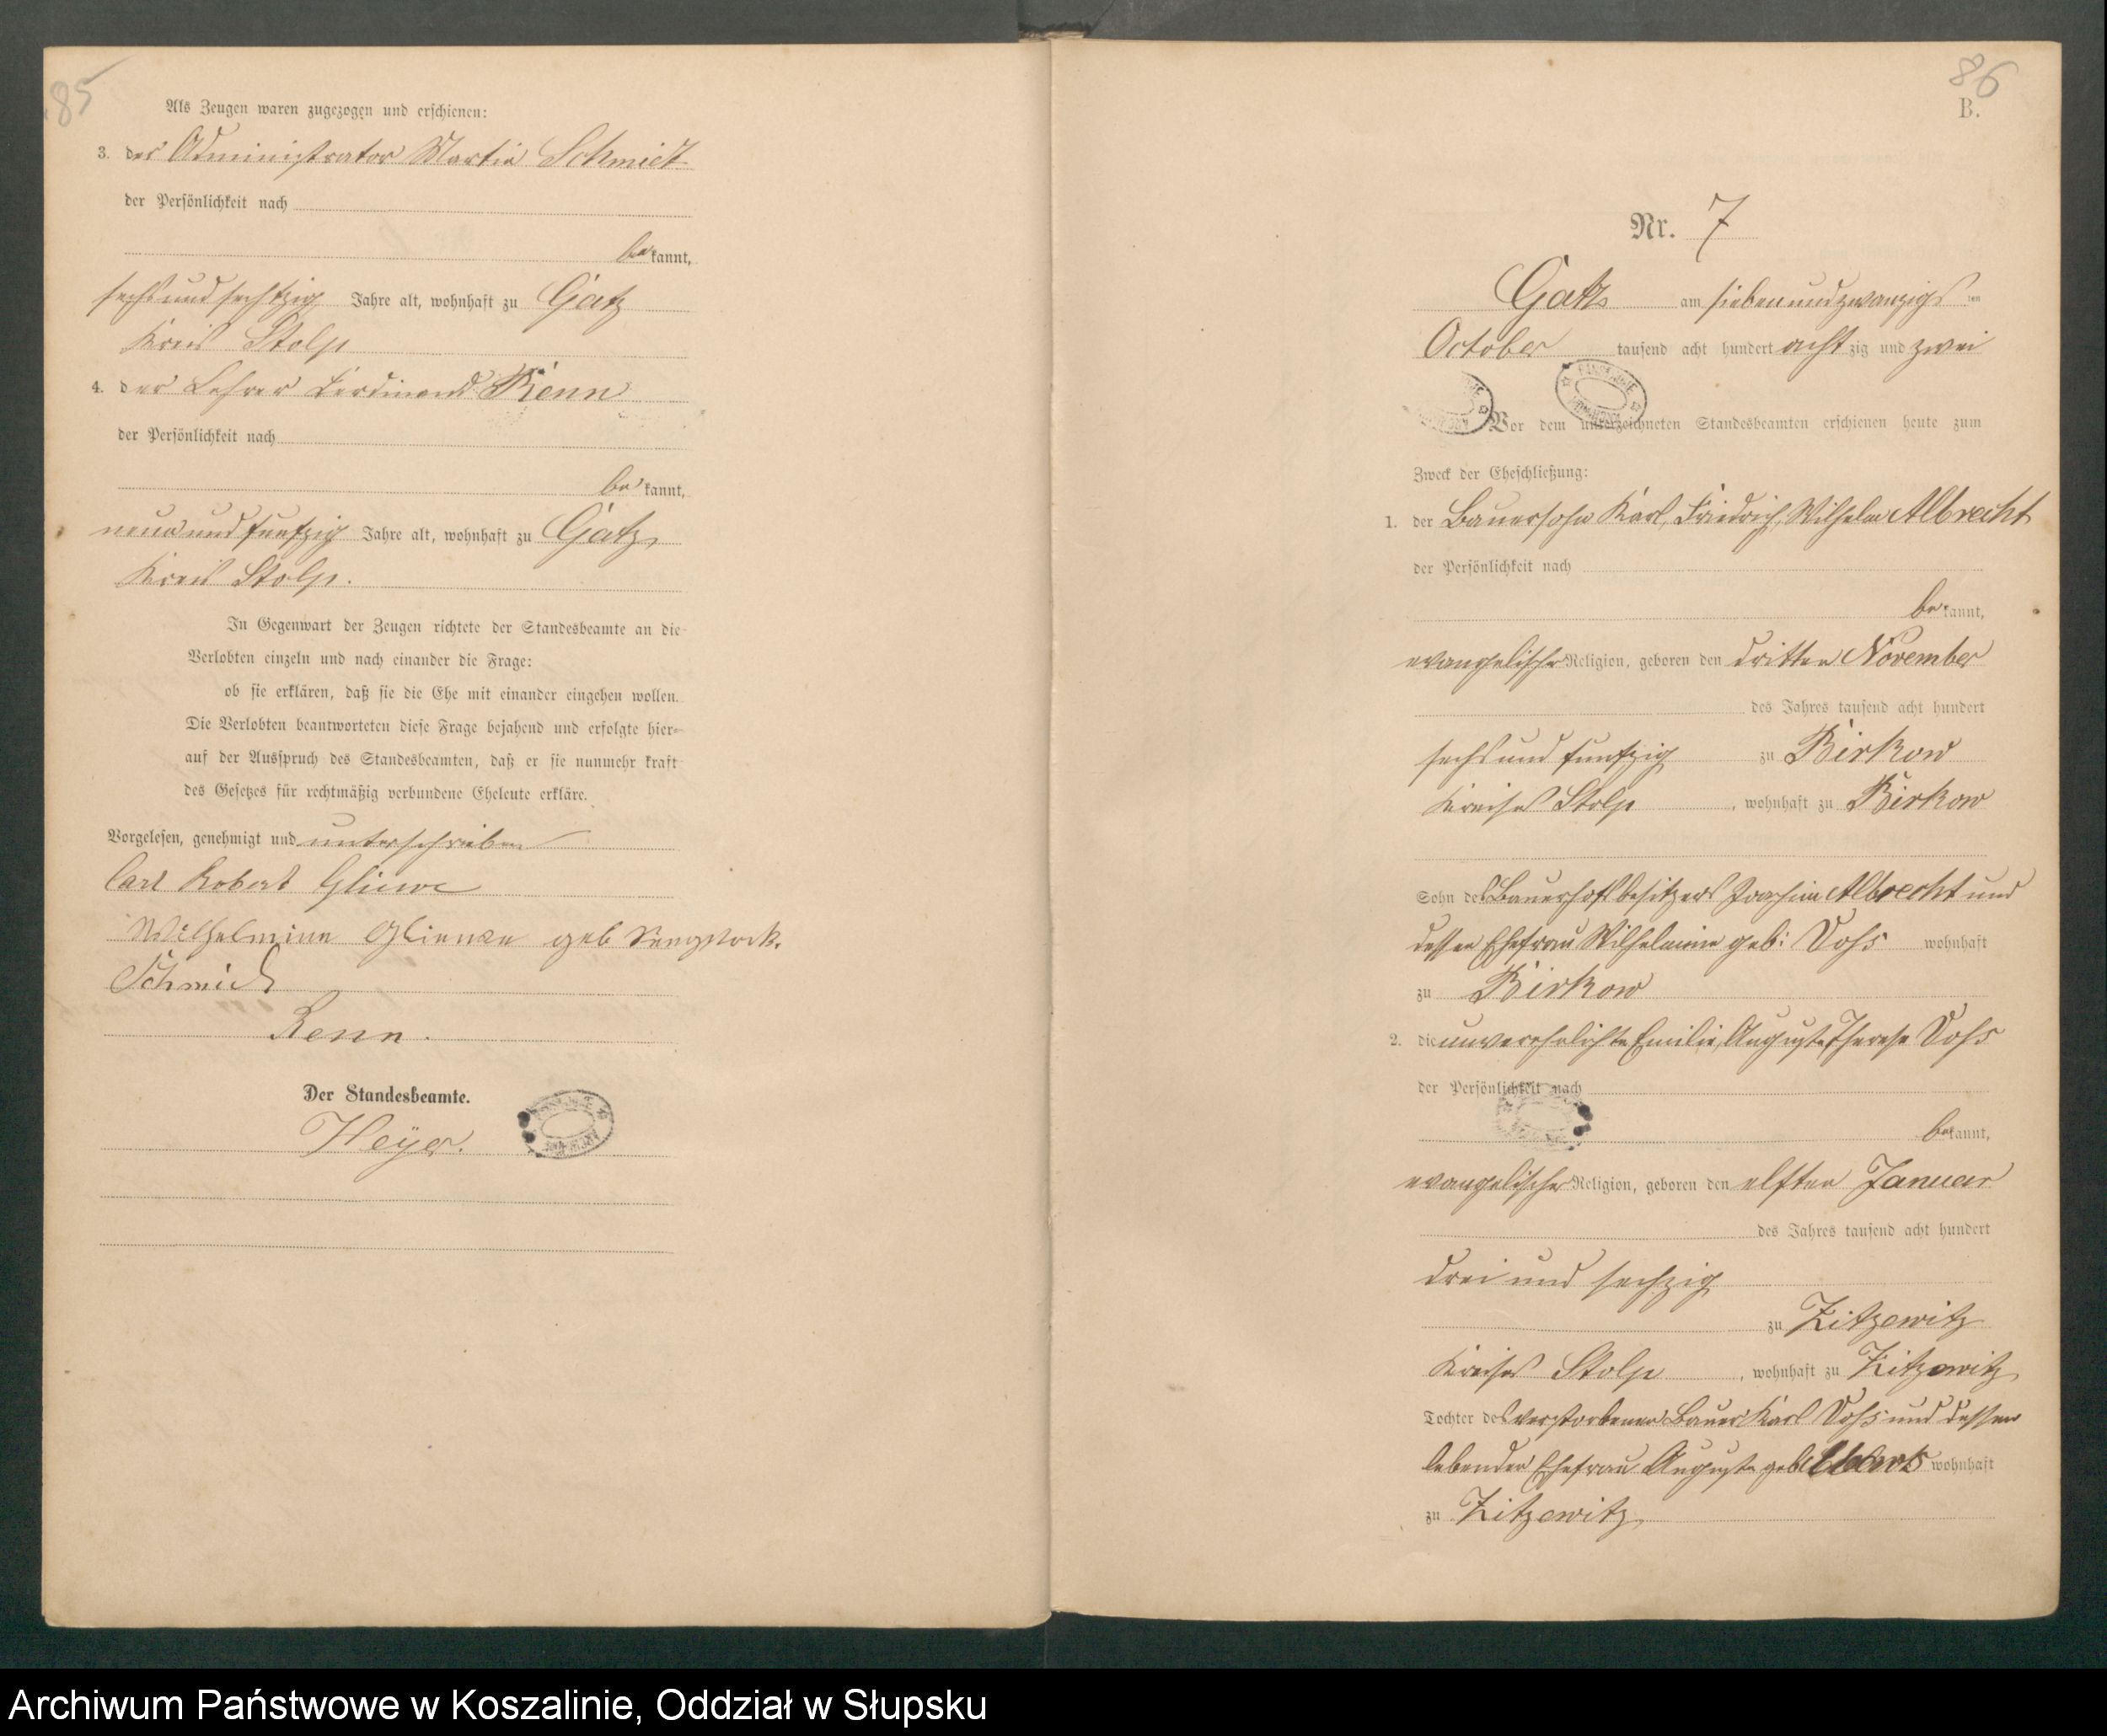 85
Als Zeugen waren zugezogen und erschienen:
3. der Administrator Martin Schmidt
der Persönlichkeit nach
bekannt,
sechs und sechszig Jahre alt, wohnhaft zu Gatz
Kreis Stolp
4. der Lehrer Ferdinand Renn
der Persönlichkeit nach
bekannt,
neun und funfzig Jahre alt, wohnhaft zu Gatz,
Kreis Stolp.
In Gegenwart der Zeugen richtete der Standesbeamte an die
Verlobten einzeln und nach einander die Frage:
ob sie erklären, daß sie die Ehe mit einander eingehen wollen.
Die Verlobten beantworteten diese Frage bejahend und erfolgte hier-
auf der Ausspruch des Standesbeamten, daß er sie nunmehr kraft
des Gesetzes für rechtmäßig verbundene Eheleute erkläre.
Vorgelesen, genehmigt und unterschrieben
Carl Robert
Wilhelmine geb
Schmidt
Renn.
Der Standesbeamte.
Heyer.
86
B.
Nr. 7
Gatz am siebenundzwanzigsten
October tausend acht hundert achtzig und zwei
Vor dem unterzeichneten Standesbeamten erschienen heute zum
Zweck der Eheschließung:
1. der Bauersohn Karl, Friedrich, Wilhelm Albrecht
der Persönlichkeit nach
bekannt,
evangelischer Religion, geboren den dritten November
des Jahres tausend acht hundert
sechs und funfzig zu Birkow
Kreises Stolp, wohnhaft zu Birkow
Sohn des Bauerhofsbesitzers Joachim Albrecht und
dessen Ehefrau Wilhelmine geb: Voss wohnhaft
zu Birkow
2. die unverehelichte Emilie, Auguste, Therese Voss
der Persönlichkeit nach
bekannt,
evangelischer Religion, geboren den elften Januar
des Jahres tausend acht hundert
drei und sechzig
zu Zitzewitz
Kreises Stolp, wohnhaft zu Zitzewitz
Tochter des verstorbenen Bauer Karl Voss und dessen
lebenden Ehefrau Auguste geb wohnhaft
zu Zitzewitz,
Archiwum Państwowe w Koszalinie, Oddział w Słupsku